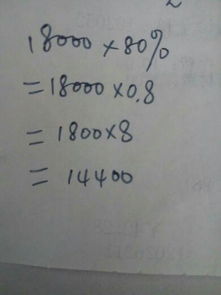 18000×80%
=18000×0.8
=1800×8
=14400